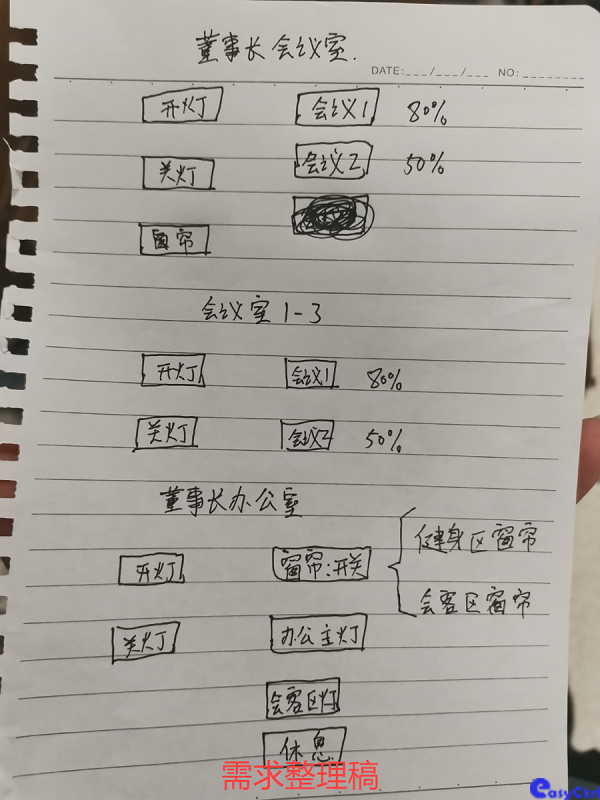 董事长会议室.
DATE:___/___/___ NO:________
开灯 会议1 80%
关灯 会议2 50%
窗帘
会议室1-3
开灯 会议1 80%
关灯 会议2 50%
董事长办公室
健身区窗帘
开灯 窗帘:开关
会客区窗帘
关灯 办公主灯
会客区灯
休息
需求整理稿
EasyCtrl